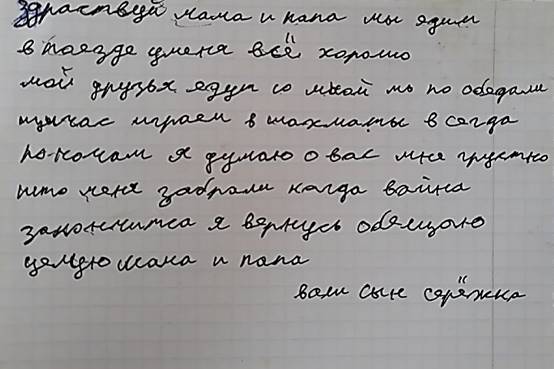 здраствуй мама и папа мы едим
в поезде уменя всё хорошо
мой друзья едут со мной мы по обедали
щичас играем в шахматы в сегда
по-ночам я думаю о вас мне грустно
што меня забрали когда вайна
закончитса я вернусь обемщаю
цемдю мама и папа
ваш сын серёжка